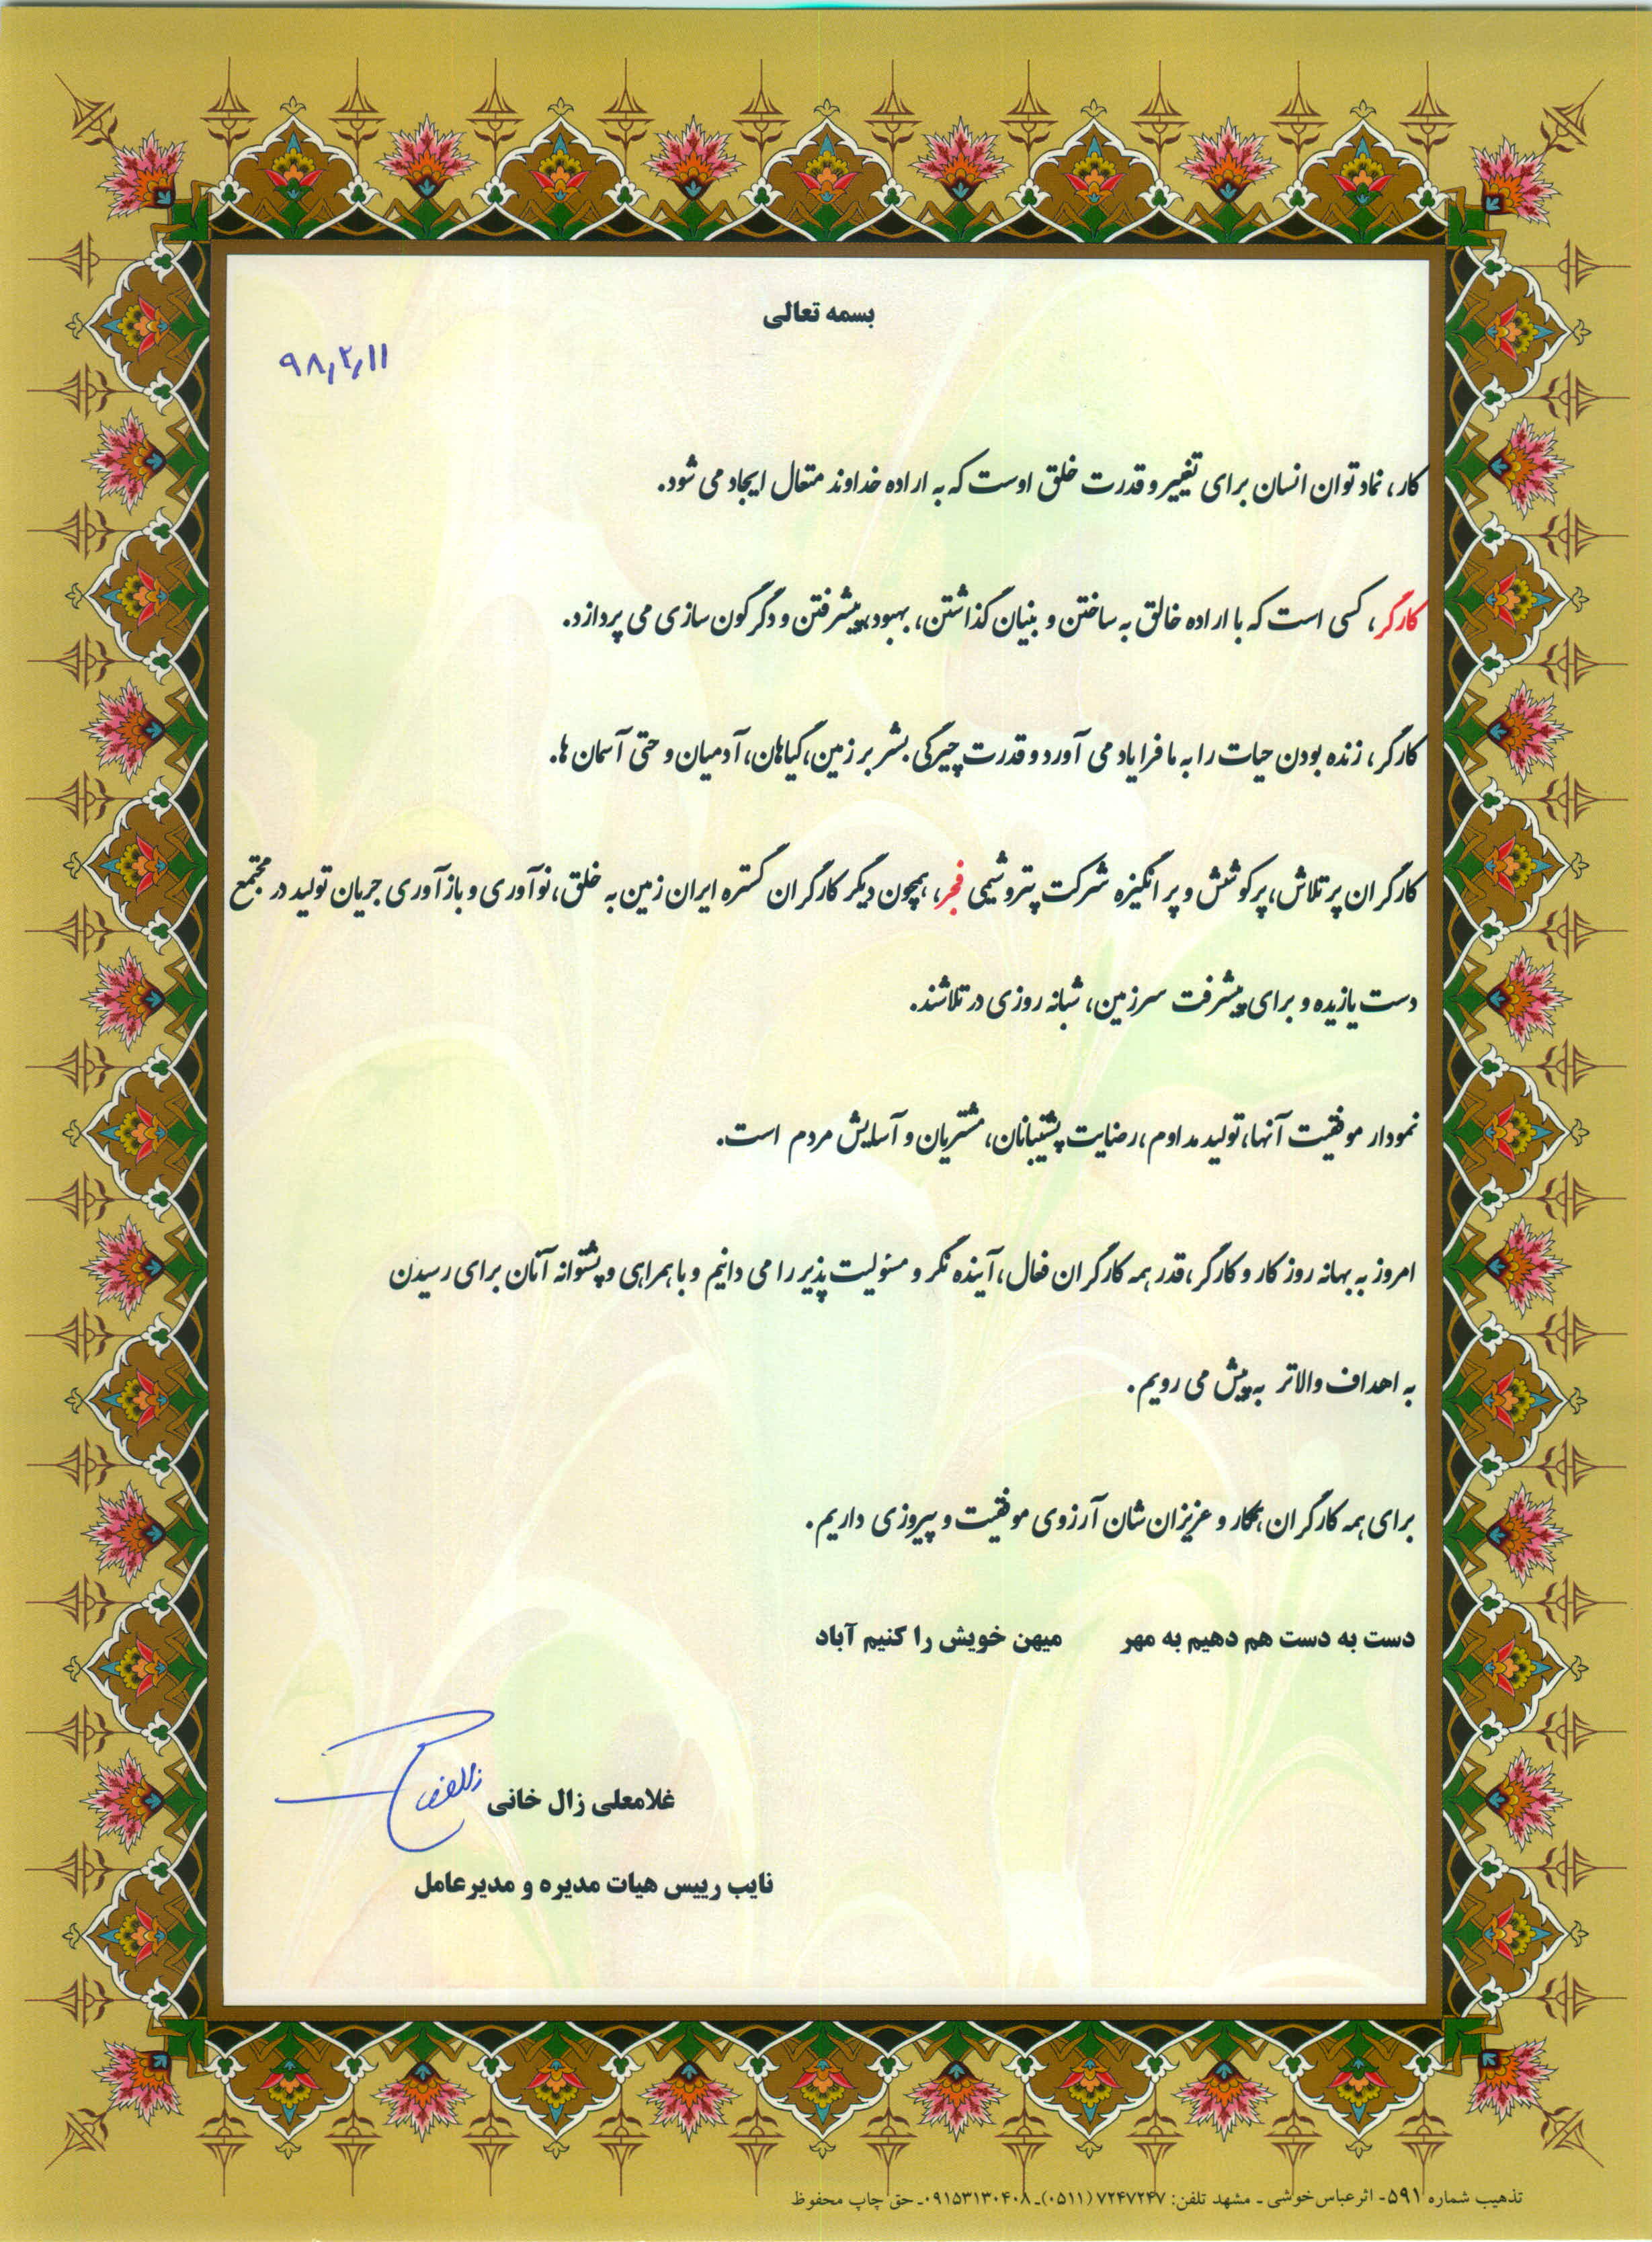 بسمه تعالی
۹۸٫۲٫۱۱
کار، نماد توان انسان برای تغییر و قدرت خلق اوست که به اراده خداوند متعال ایجاد می شود.
کارگر، کسی است که با اراده خالق به ساختن و بنیان گذاشتن، بهبود، پیشرفتن و دگرگون سازی می پردازد.
کارگر، زنده بودن حیات را به ما فرا یاد می آورد و قدرت چیرگی بشر بر زمین، گیاهان، آدمیان و حتی آسمان ها.
کارگران پر تلاش، پر کوشش و پر انگیزه شرکت پتروشیمی فجر، همچون دیگر کارگران گستره ایران زمین به خلق، نوآوری و باز آوری جریان تولید در مجتمع
دست یازیده و برای پیشرفت سرزمین، شبانه روزی در تلاشند.
نمودار موفقیت آنها، تولید مداوم، رضایت پشتیبانان، مشتریان و آسایش مردم است.
امروز به بهانه روز کار و کارگر، قدر همه کارگران فعال، آینده نگر و مسئولیت پذیر را می دانیم و با همراهی و پشتوانه آنان برای رسیدن
به اهداف والاتر به پیش می رویم.
برای همه کارگران همکار و عزیزان شان آرزوی موفقیت و پیروزی داریم.
دست به دست هم دهیم به مهر میهن خویش را کنیم آباد
غلامعلی زال خانی
نایب رییس هیات مدیره و مدیرعامل
تذهیب شماره ۵۹۱- اثر عباس خوشی - مشهد تلفن: ۷۲۴۷۲۴۷ (۰۵۱۱)ـ ۰۹۱۵۳۱۳۰۴۰۸ـ حق چاپ محفوظ